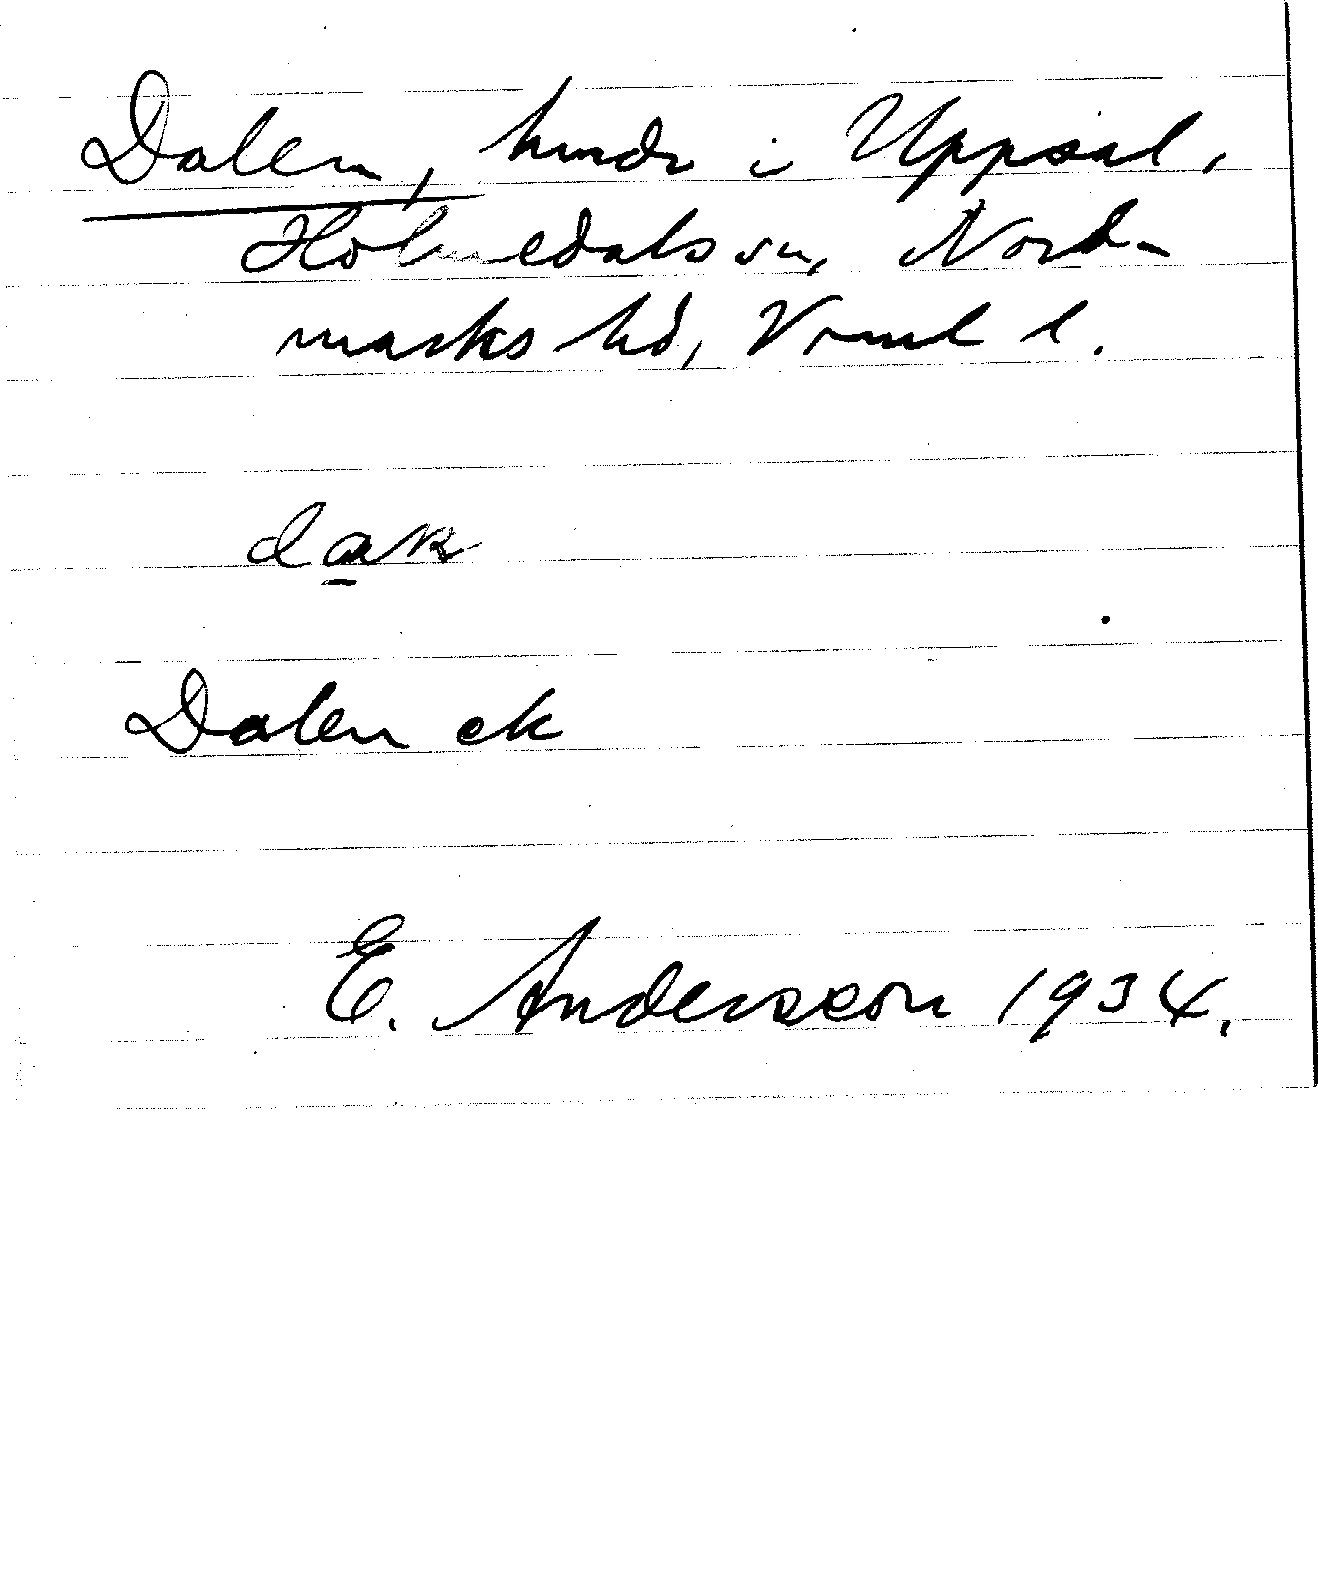 Dalen, hmdr i Uppsal,
Holmedals sn, Nord-
marks hd, Vrml l.
Dalen ek
E. Andersson 1934.